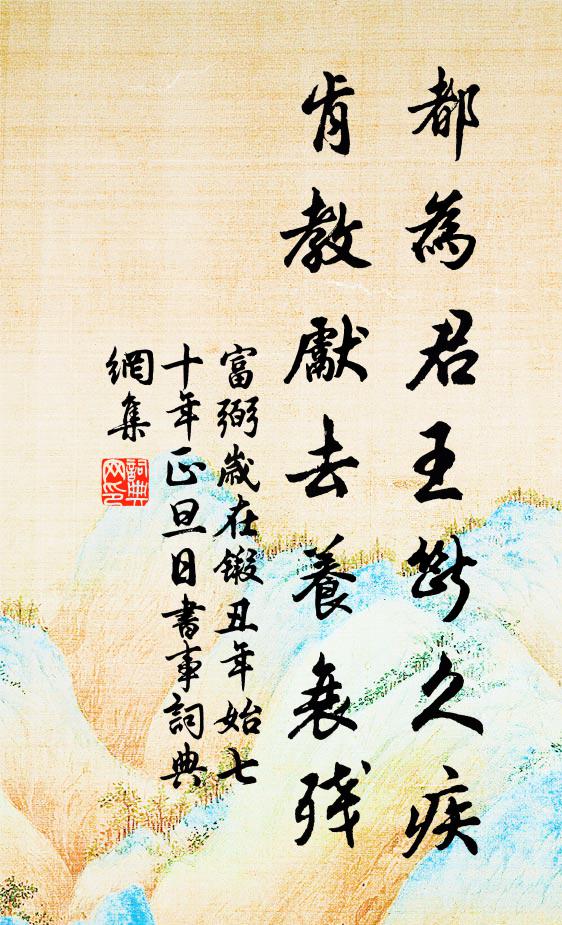 都為君王久疾
肯教獻去養衰殘
富弼歲在鍛丑年始七
十年正旦日書事詞典
網集
詞典
网印